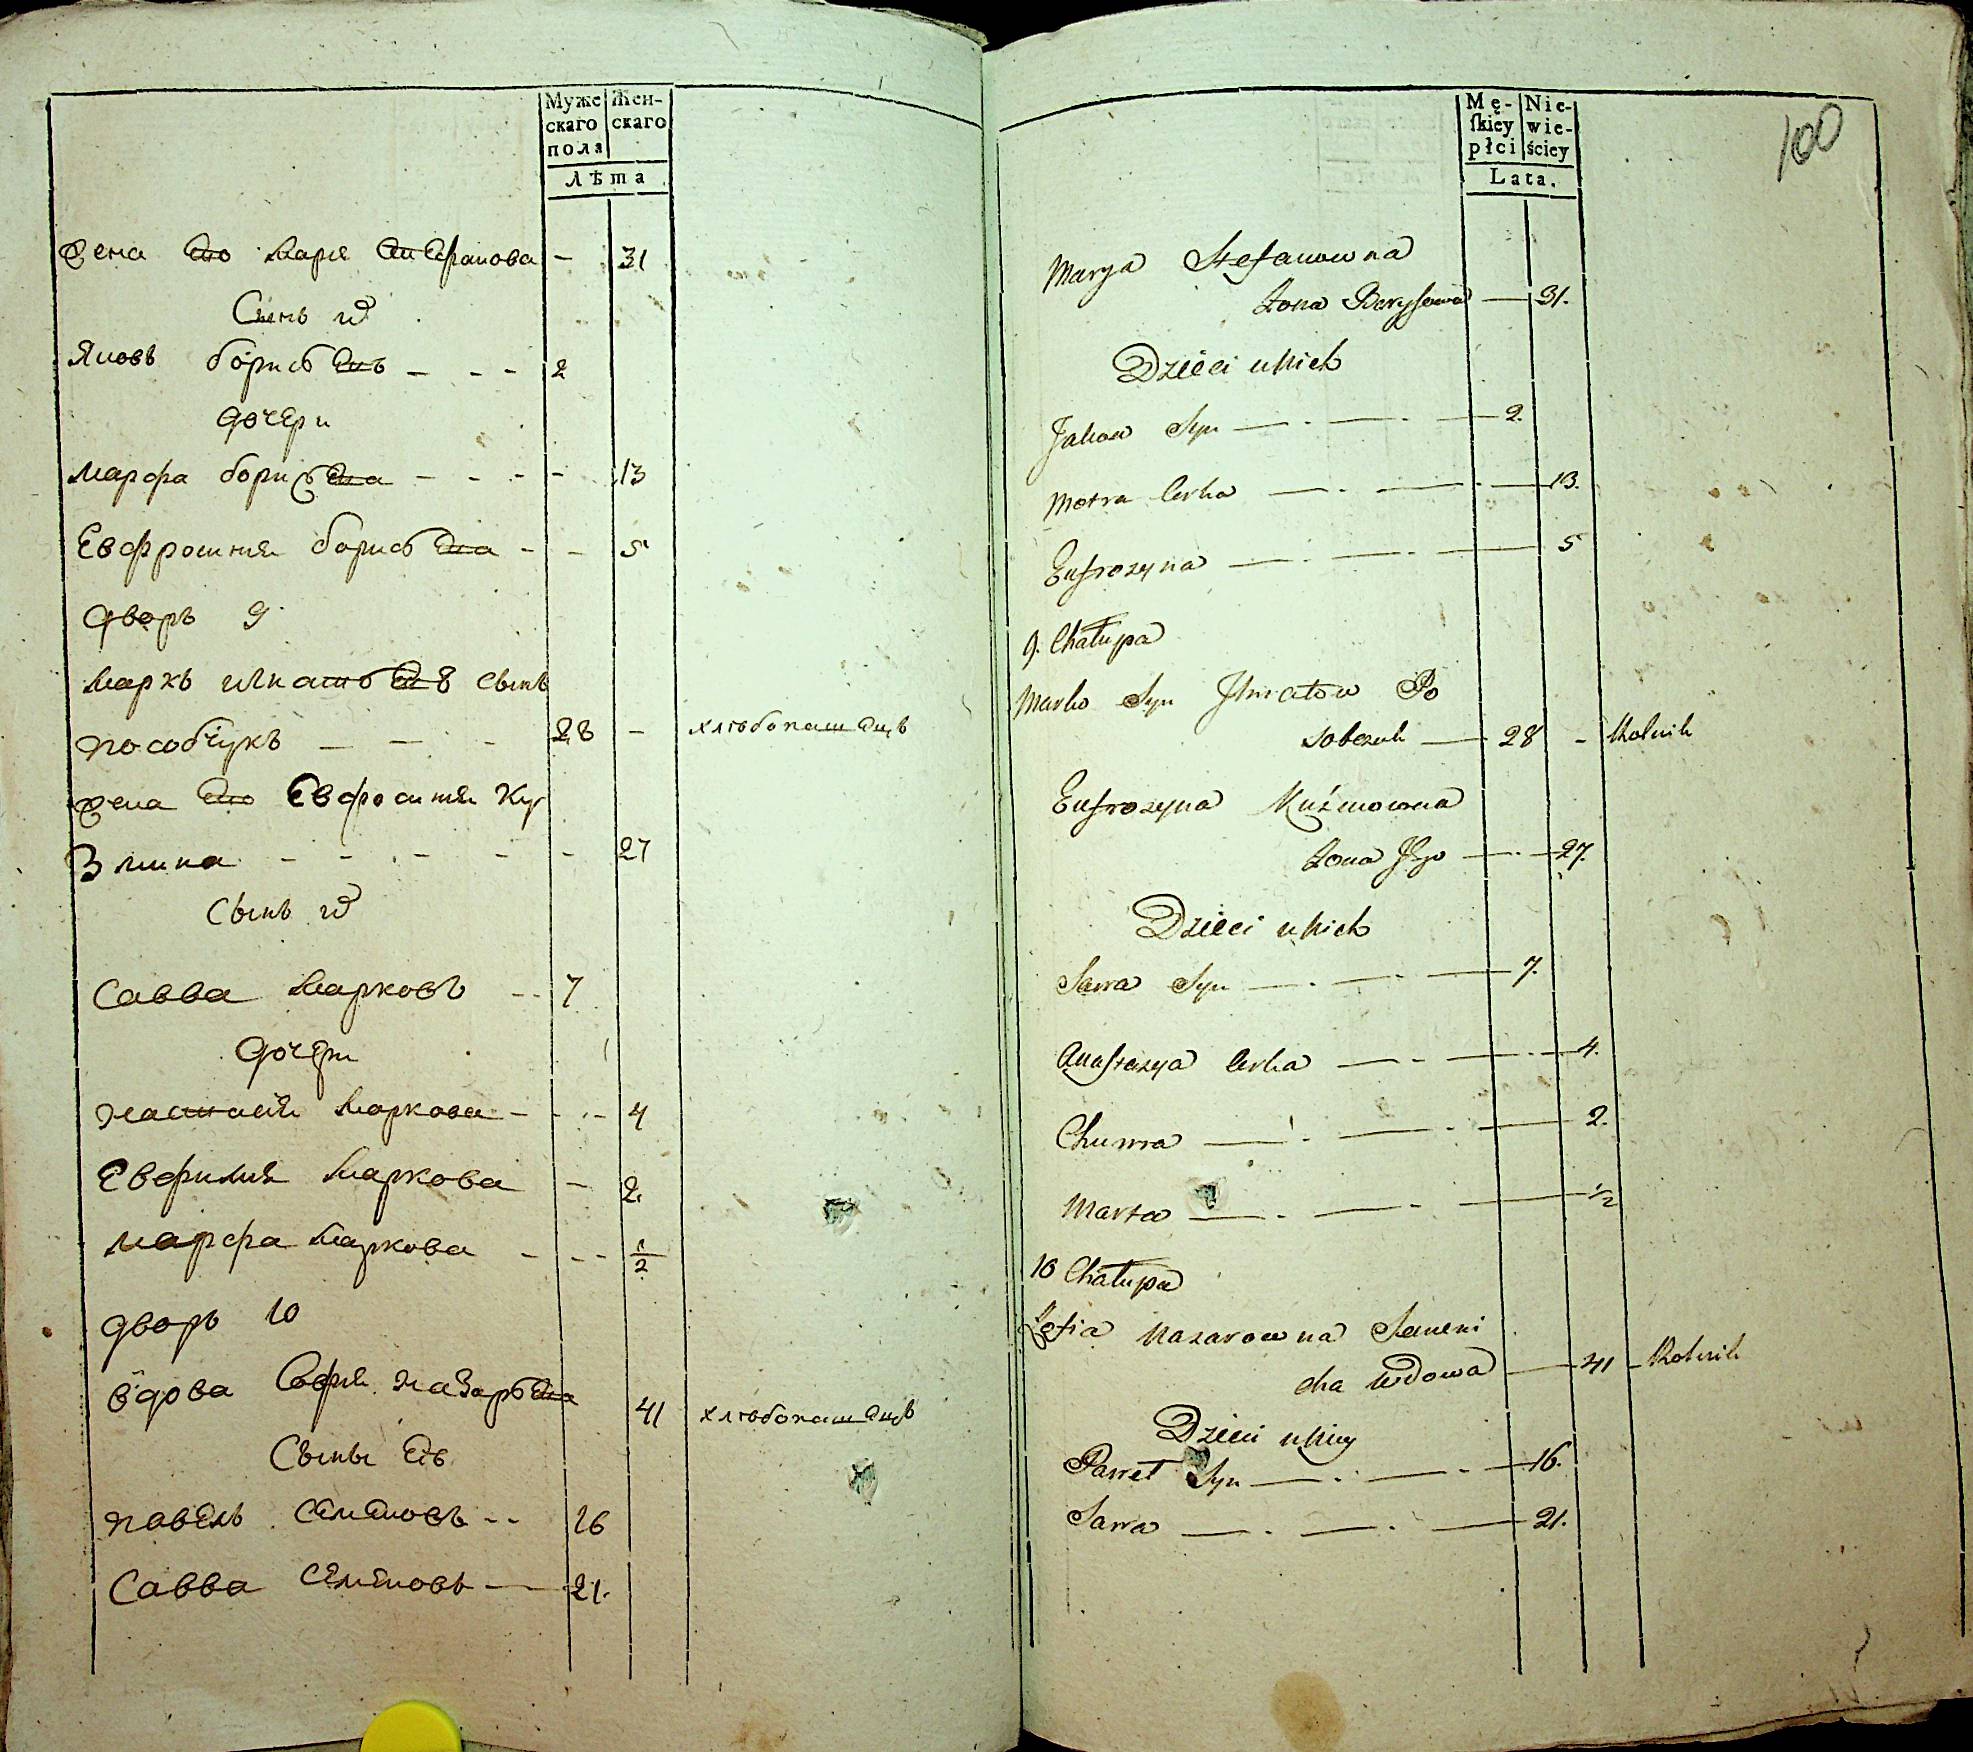 Муже
скаго
пола
Жен-
скаго
Лѣта
жена его марія стефанова — 31
Сынъ их
Яковъ борисовъ — — — 2
дочери
марфа борисова — — — — 13
Евфросинія борисова — — 5
дворъ 9
маркъ игнатовъ сынъ
пособчукъ — — — 28 — хлѣбопашецъ
жена его Евфросинія Ку
змина — — — — — 27
Сынъ их
Савва марковъ — — 7
дочери
настасія маркова — — — 4
Евфимія маркова — 2
марфа маркова — — — 1/2
дворъ 10
вдова Софія назарова 41 хлѣбопашецъ
Сыны ее
павелъ семеновъ — — 16
Савва семеновъ — 21.
100
Mę-
skiey
płci
Nie-
wie-
ściey
Lata.
Marya Stefanowna
Żona Borysowa — 31.
Dzieci u nich
Jakow Syn — . — . — 2.
Motra Corka — . — . — 13.
Eufrozyna — . — . — 5
9. Chałupa
Marko Syn Ihnatow Po
sobczuk — 28 — Rolnik
Eufrozyna Kuźmowna
Żona Jego — . — 27.
Dzieci u nich
Sawa Syn — . — . — 7.
Anastazya Corka — . — . — 4.
Chuwra — . — . — 2.
Marta — . — . — 1/2
10 Chałupa
Zofia Nazarowna Semeni
cha Wdowa — 41 — Rolnik
Dzieci u niey
Paweł Syn — . — . — 16.
Sawa — . — . — 21.